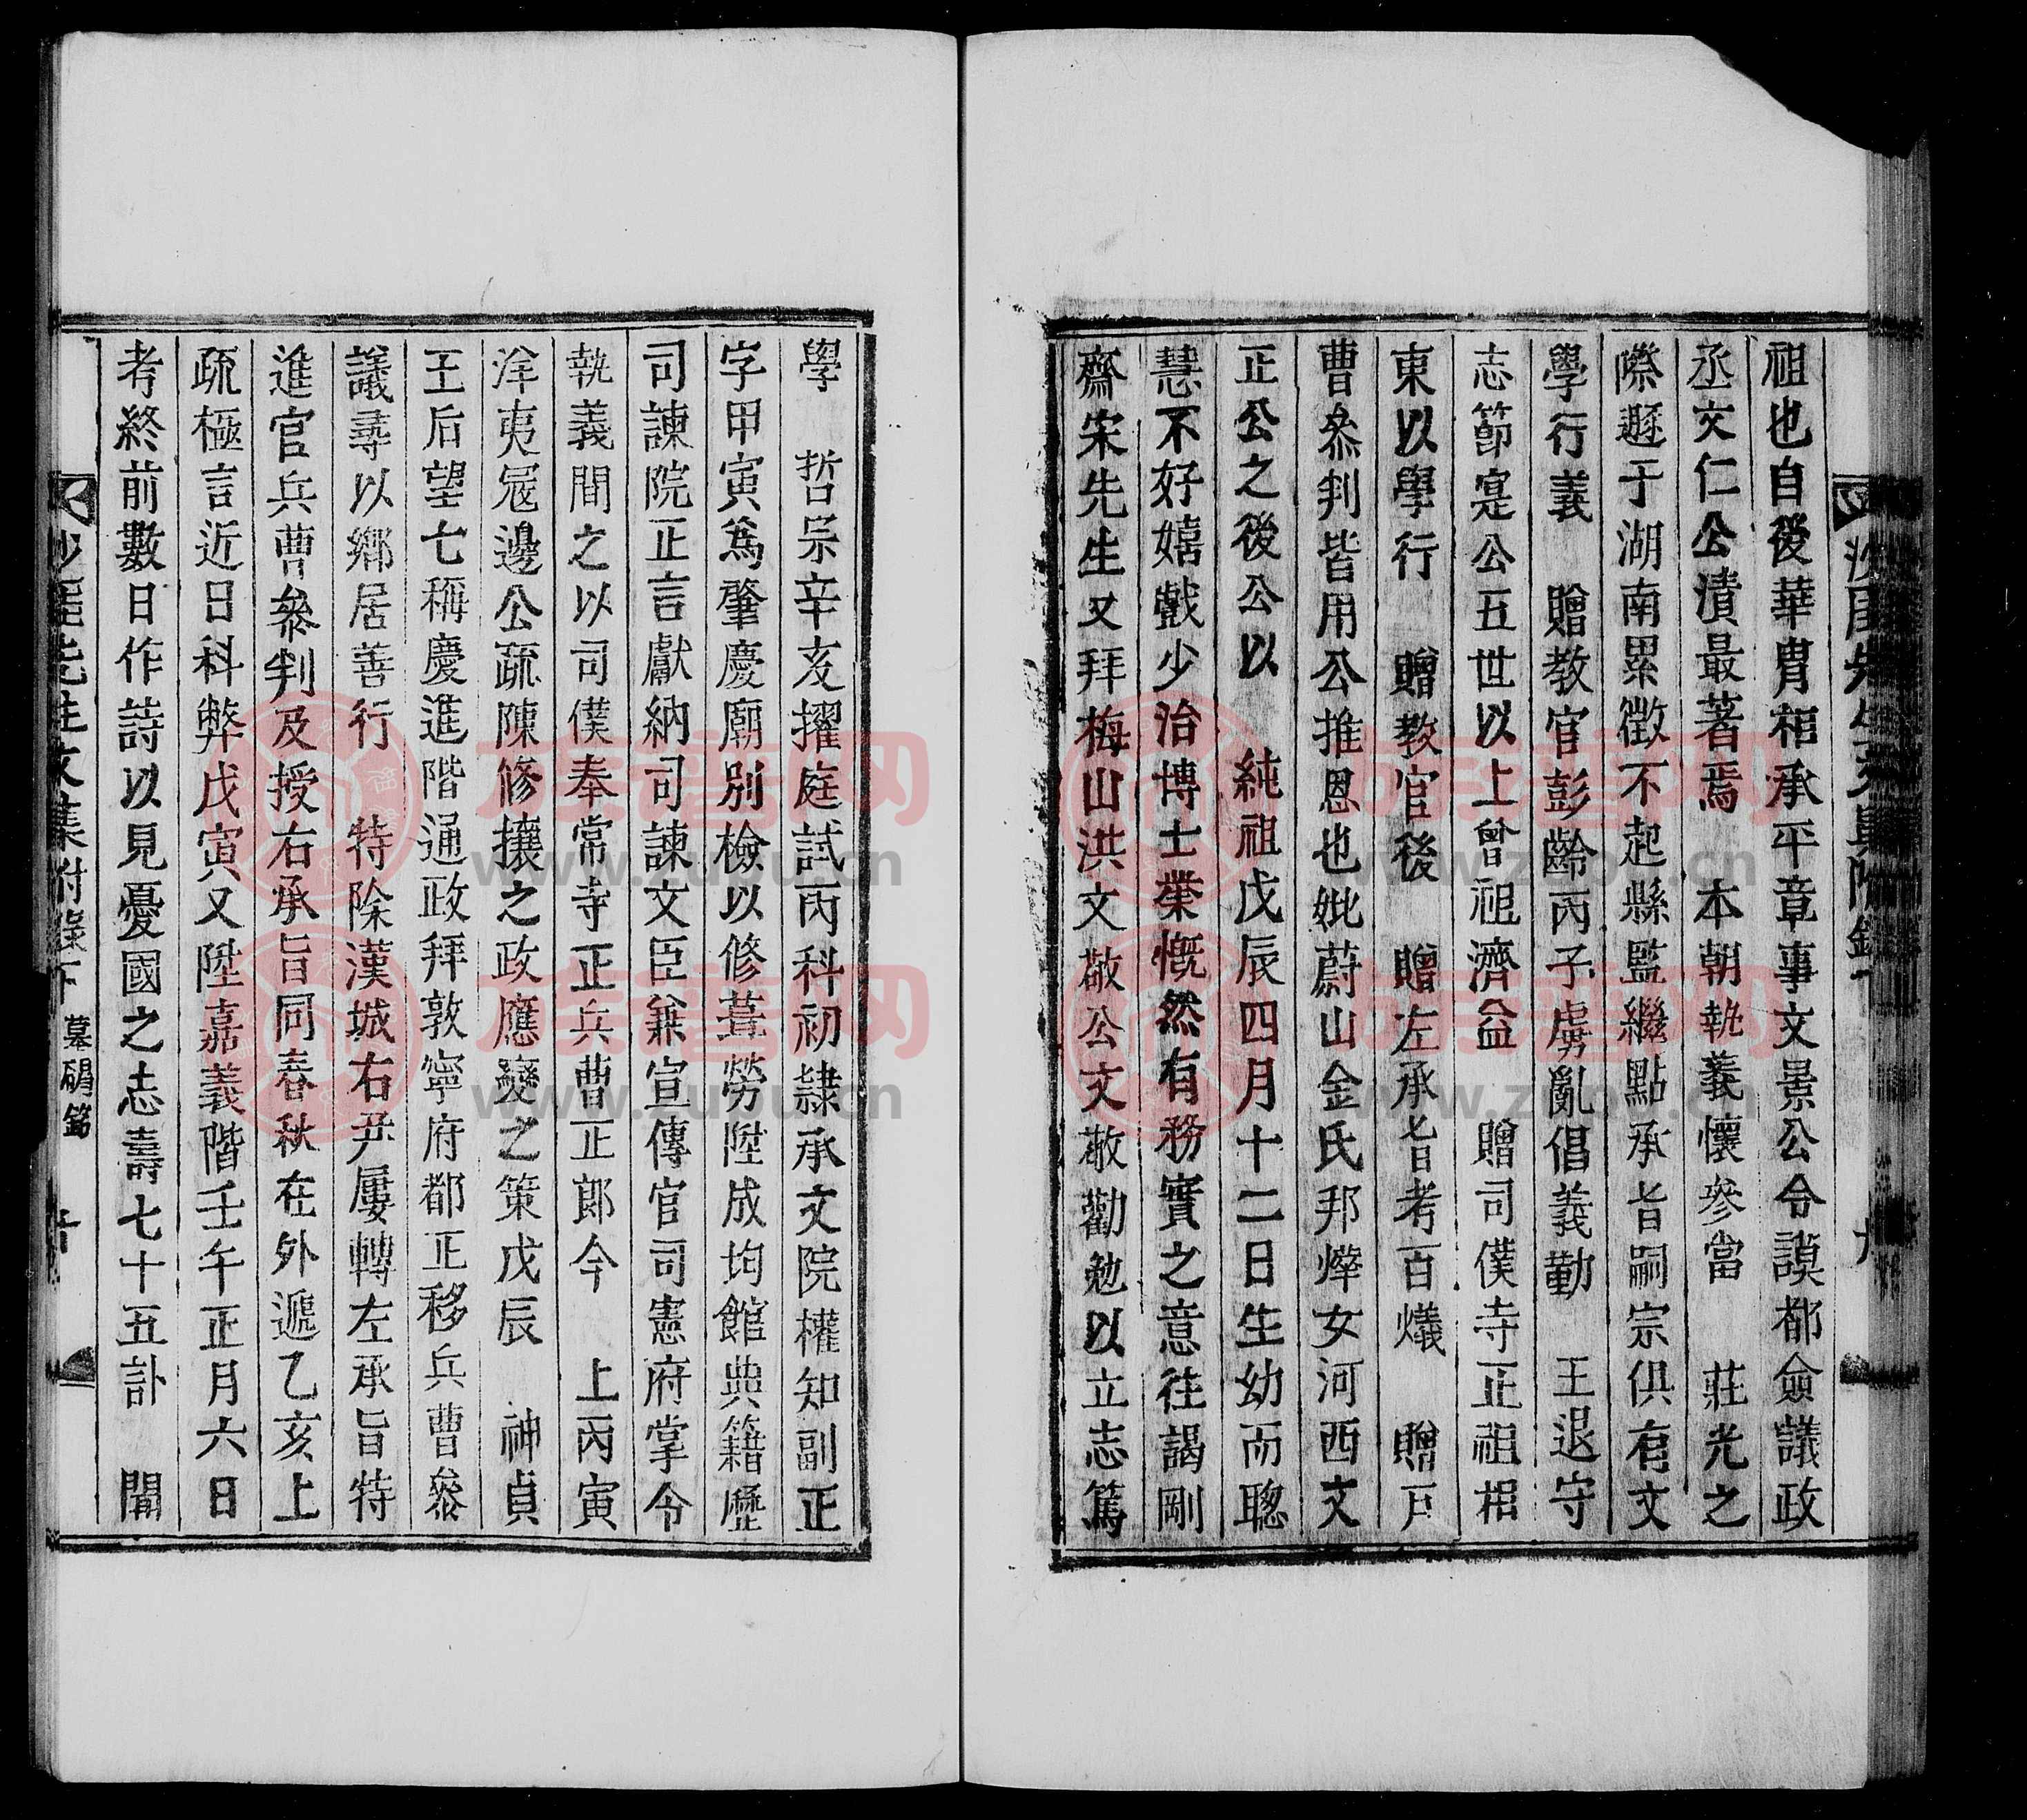 祖也自後華胄相承平章事文景公令謨都僉議政
丞文仁公漬最著焉　本朝執義懷參當　莊光之
際遯于湖南累徵不起縣監繼點承旨嗣宗俱有文
學行義　贈教官彭齡丙子虜亂倡義勤　王退守
志節寔公五世以上曾祖濟益　贈司僕寺正祖相
東以學行　贈教官後　贈左承旨考百爔　贈戶
曹叅判皆用公推恩也妣蔚山金氏邦燁女河西文
正公之後公以　純祖戊辰四月十二日生幼而聰
慧不好嬉戲少治博士業慨然有務實之意往謁剛
齋宋先生又拜梅山洪文敬公文敬勸勉以立志篤
學　哲宗辛亥擢庭試丙科初隷承文院權知副正
字甲寅爲肇慶廟別檢以修葺勞陞成均館典籍歷
司諫院正言獻納司諫文臣兼宣傳官司憲府掌令
執義間之以司僕奉常寺正兵曹正郎今　上丙寅
洋夷寇邊公疏陳修攘之政應變之策戊辰　神貞
王后望七稱慶進階通政拜敦寧府都正移兵曹叅
議尋以鄉居善行　特除漢城右尹屢轉左承旨特
進官兵曹叅判及授右承旨同春秋在外遞乙亥上
疏極言近日科弊戊寅又陞嘉義階壬午正月六日
考終前數日作詩以見憂國之志壽七十五訃　聞
沙崖先生文集附錄下　墓碣銘　十